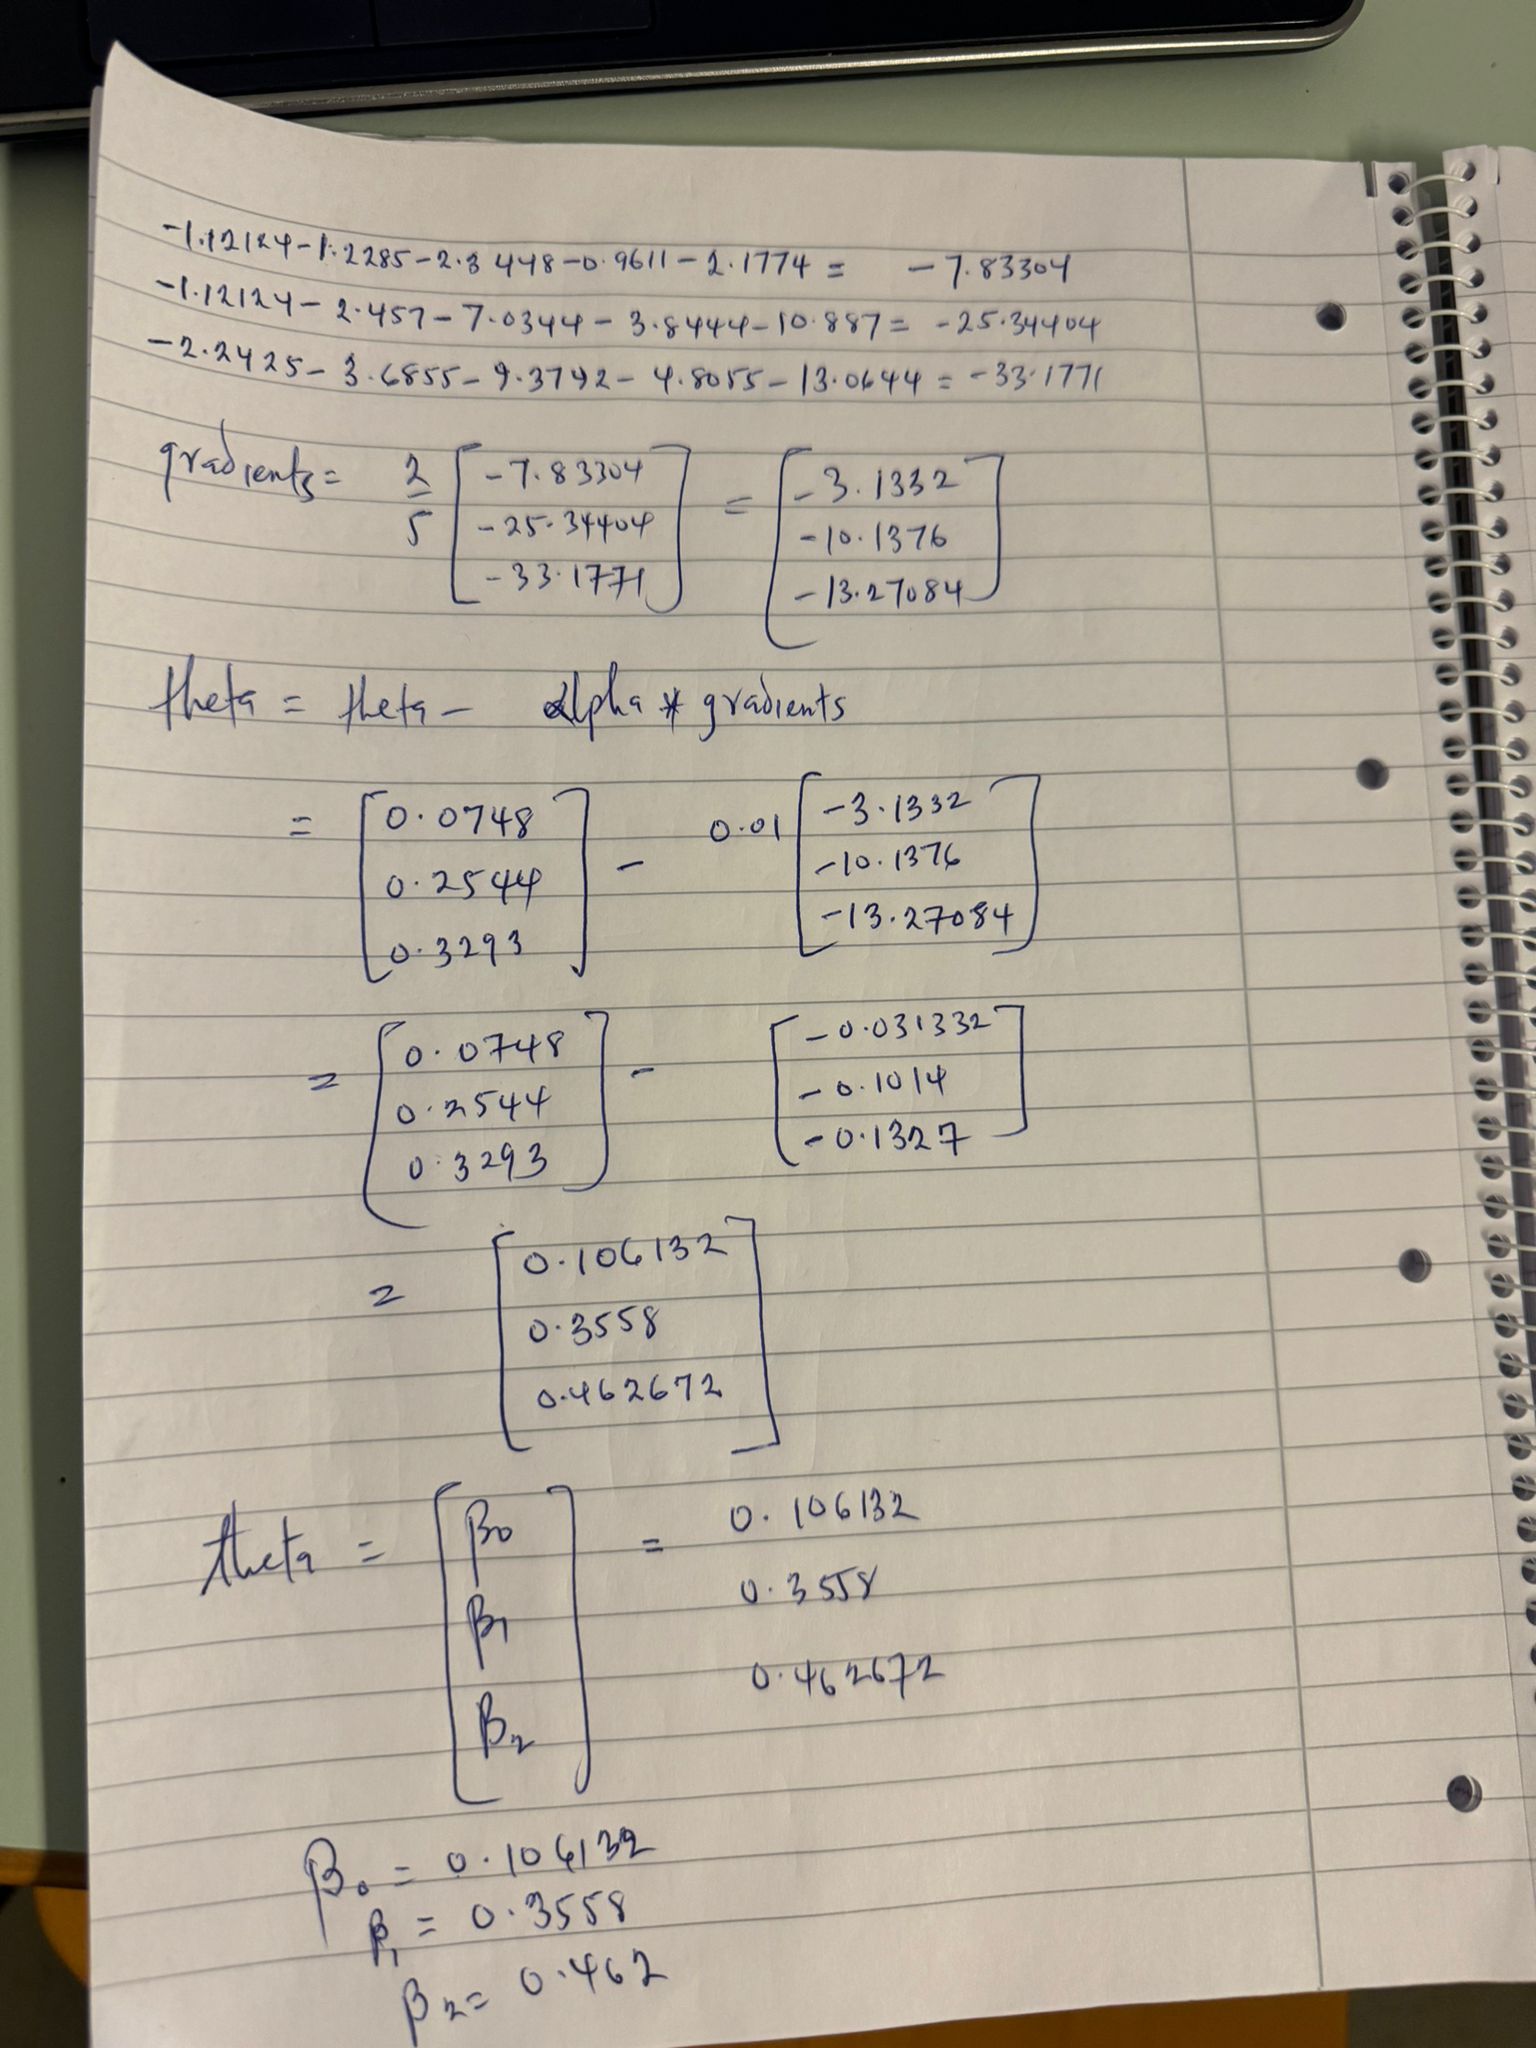 -1.12124-1.2285-2.3448-0.9611-2.1774 = -7.83304
-1.12124-2.457-7.0344-3.8444-10.887= -25.34404
-2.2425-3.6855-9.3792-4.8055-13.0644 = -33.1771
gradients = 2/5 [-7.83304 = [-3.1332
-25.34404 -10.1376
-33.1771] -13.27084]
theta = theta - alpha * gradients
= [0.0748 - 0.01 [-3.1332
0.2544 -10.1376
0.3293] -13.27084]
= [0.0748 - [-0.031332
0.2544 -0.1014
0.3293] -0.1327]
= [0.106132
0.3558
0.462672]
theta = [β0 = 0.106132
β1 0.3558
β2] 0.462672
β0 = 0.106132
β1 = 0.3558
β2 = 0.462